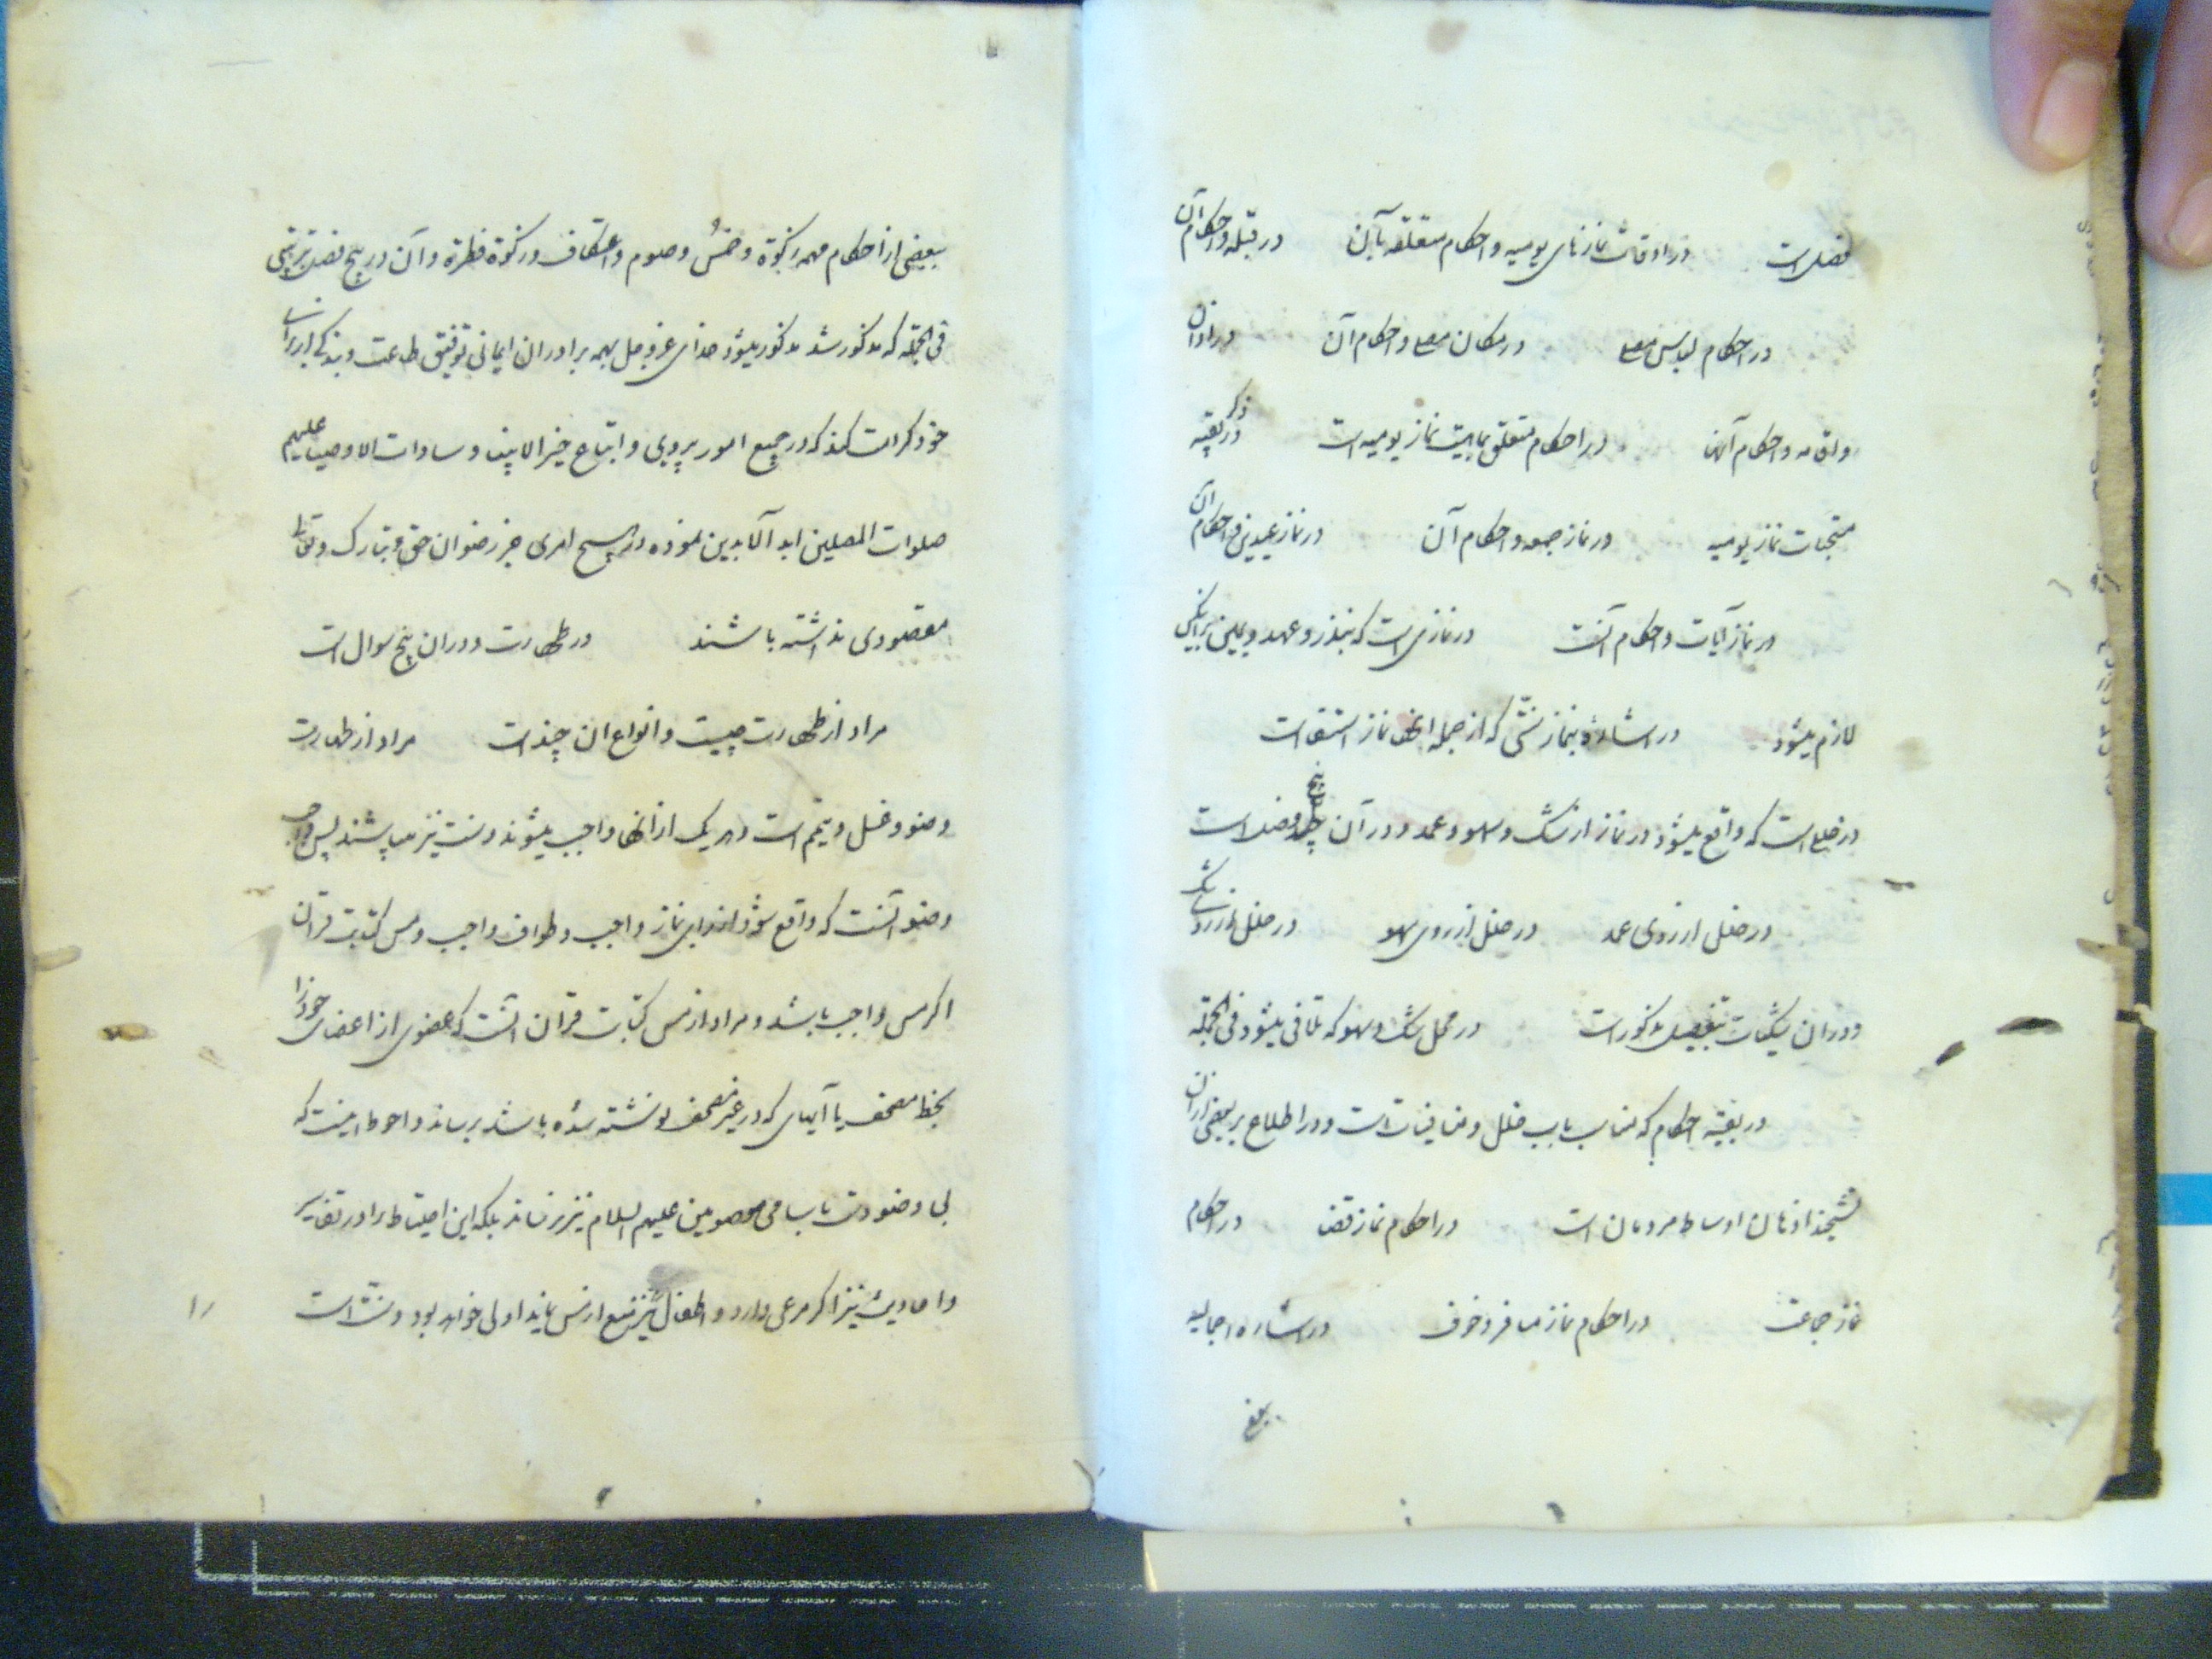 فصل است در اوقات نمازهای یومیه و احکام متعلقه بآن در قبله و احکام آن
در احکام لباس مصلی در مکان مصلی و احکام آن در اذان
و اقامه و احکام آنها در احکام متعلق بماهیت نماز یومیه است در ذکر بقیه
مستحبات نماز یومیه در نماز جمعه و احکام آن در نماز عیدین و احکام آن
در نماز آیات و احکام آنست در نمازی است که بنذر و عهد و یمین بر کسی
لازم میشود در اشاره بنماز سنتی که از جمله آنها نماز استسقا است
در خللی است که واقع میشود در نماز از شک و سهو و عمد و در آن پنج فصل است
در خلل از روی عمد در خلل از روی سهو در خلل از روی شک
و در آن شکیات بتفصیل مذکور است در محل شک و سهو که تلافی میشود فی الجمله
در بقیه احکام که مناسب باب خلل و منافیات است و در اطلاع بر بعضی از آن
تشحیذ اذهان اوساط مردمان است در احکام نماز قضا در احکام
نماز جماعت در احکام نماز مسافر و خوف در اشاره اجمالیه
بعض
ببعضی از احکام مهمه زکوة و خمس و صوم و اعتکاف و زکوة فطرة و آن در پنج فصل بترتیبی
فی الجمله که مذکور شد مذکور میشود خدای عز و جل بهمه برادران ایمانی توفیق طاعت و بندگی
خود کرامت کند که در جمیع امور پیروی و اتباع خیر الانبیا و سادات الاوصیا علیهم
صلوات المصلین ابد الآبدین نموده در هیچ امری جز رضوان حق تبارک و تعالی
مقصودی نداشته باشند در طهارت و در آن پنج سوال است
مراد از طهارت چیست و انواع آن چند است مراد از طهارت
وضو و غسل و تیمم است و هر یک از آنها واجب میشوند و سنت نیز میباشند پس واجب
وضو آنست که واقع شود از برای نماز واجب و طواف واجب و مس کتابت قرآن
اگر مس واجب باشد و مراد از مس کتابت قرآن آنست که عضوی از اعضای خود را
بخط مصحف یا آیهای که در غیر مصحف نوشته شده باشد برساند و احوط اینست که
بی وضو دست باسامی معصومین علیهم السلام نیز نرساند بلکه این احتیاط را در تفاسیر
و احادیث نیز اگر مرعی دارد و اطفال را نیز منع از مس نماید اولی خواهد بود و سنت است